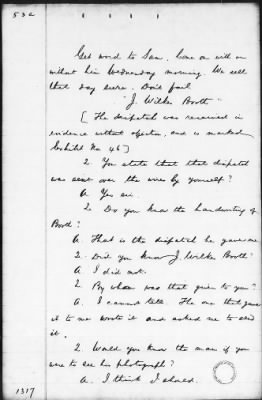 532
Get word to Sam. Come on with or
without him Wednesday morning. We sell
that day sure. Don't fail
"J. Wilkes Booth"
[The despatch was received in
evidence without objection, and is marked
Exhibit No. 46]
Q. You state that that dispatch
was sent over the wires by yourself?
A. Yes sir.
Q. Do you know the handwriting of
Booth?
A. That is the dispatch he gave me
Q. Did you know J. Wilkes Booth?
A. I did not.
Q. By whom was that given to you?
A. I cannot tell. The one that gave
it to me wrote it and asked me to send
it.
Q. Would you know the man if you
were to see his photograph?
A. I think I should.
1317